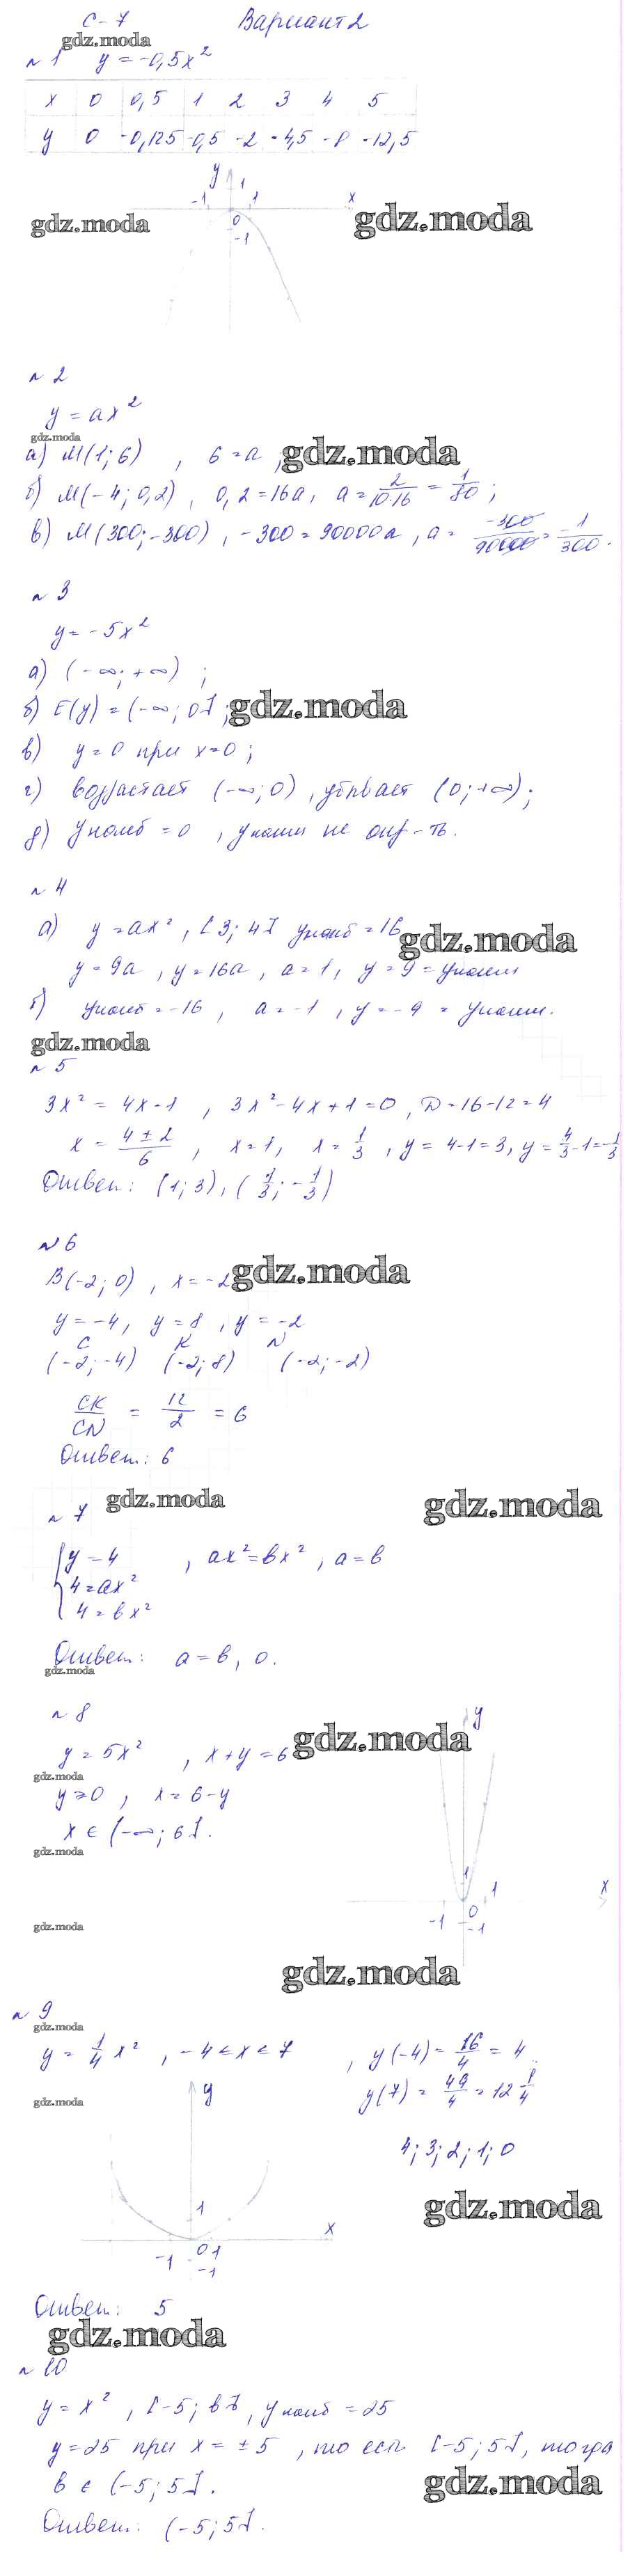 С-7 Вариант 2
gdz.moda
№1 y = -0,5x²
x 0 0,5 1 2 3 4 5
y 0 -0,125 -0,5 -2 -4,5 -8 -12,5
y
1
-1 1 x
0
-1
gdz.moda gdz.moda
№2
y = ax²
gdz.moda
а) M(1; 6) , 6 = a ; gdz.moda
б) M(-4; 0,2) , 0,2 = 16a, a = 2/10·16 = 1/80 ;
в) M(300; -300) , -300 = 90000a , a = -300/90000 = -1/300 .
№3
y = -5x²
а) (-∞; +∞) ;
б) E(y) = (-∞; 0] ; gdz.moda
в) y = 0 при x = 0 ;
г) возрастает (-∞; 0) , убывает (0; +∞) ;
д) y наиб = 0 , y наим не опр-ть.
№4
а) y = ax² , [3; 4] y наиб = 16 gdz.moda
y = 9a , y = 16a , a = 1 , y = 9 = y наим
б) y наиб = -16 , a = -1 , y = -9 = y наим.
gdz.moda
№5
3x² = 4x - 1 , 3x² - 4x + 1 = 0 , D = 16 - 12 = 4
x = 4 ± 2/6 , x = 1 , x = 1/3 , y = 4 - 1 = 3, y = 4/3 - 1 = -1/3
Ответ: (1; 3) , (1/3; -1/3)
№6
B(-2; 0) , x = -2 gdz.moda
y = -4 , y = 8 , y = -2
C K N
(-2; -4) (-2; 8) (-2; -2)
CK/CN = 12/2 = 6
Ответ: 6
gdz.moda gdz.moda
№7
y = 4 , ax² = bx² , a = b
4 = ax²
4 = bx²
Ответ: a = b, 0.
gdz.moda
№8
y
y = 5x² , x + y = 6 gdz.moda
gdz.moda
y ≥ 0 , x = 6 - y
x ∈ (-∞; 6] .
gdz.moda
1
1 x
-1 0
-1
gdz.moda
gdz.moda
№9
gdz.moda
y = 1/4 x² , -4 < x < 7 , y(-4) = 16/4 = 4
y(7) = 49/4 = 12 1/4
gdz.moda
y
4; 3; 2; 1; 0
gdz.moda
1
x
-1 0 1
-1
Ответ: 5
gdz.moda
№10
y = x² , [-5; b] , y наиб = 25
y = 25 при x = ±5 , то есть [-5; 5] , тогда
b ∈ (-5; 5] .
gdz.moda
Ответ: (-5; 5] .